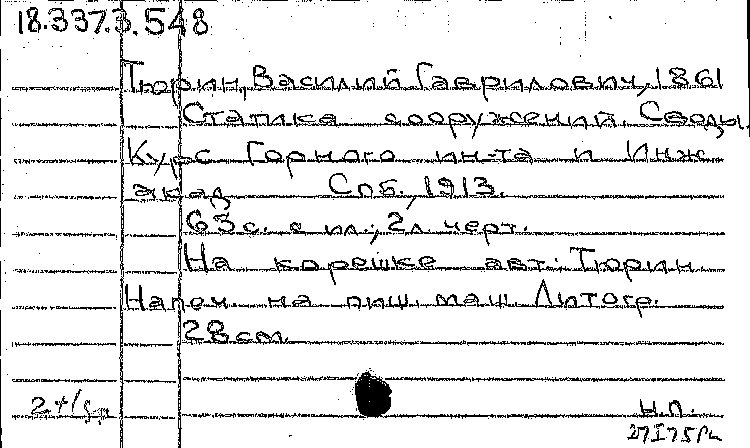 18.337.3.548
Тюрин, Василий Гаврилович, 1861
Статика сооружений. Своды.
Курс Горного ин-та и Инж.
акад. Спб., 1913.
63 с. с ил.; 2 л. черт.
На корешке авт.: Тюрин
Напеч. на пиш. маш. Литогр.
28 см.
Н.П.
27 I 75